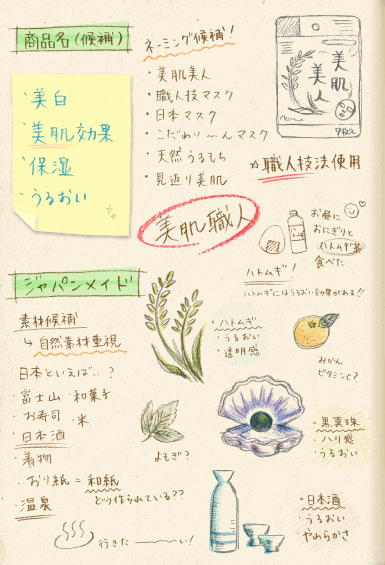 商品名(候補)
・美白
・美肌効果
・保湿
・うるおい
ネーミング候補!
・美肌美人
・職人技マスク
・日本マスク
・こだわり〜んマスク
・天然うるもち
・見返り美肌
美肌職人
美肌
美人
7枚入
☆職人技法使用
お昼に
おにぎりと
ハトムギ茶
食べた
ハトムギ!
ハトムギにはうるおい効果がある!!
ジャパンメイド
素材候補
↳自然素材重視
日本といえば…?
・富士山
・和菓子
・お寿司
・米
・日本酒
・着物
・おり紙=和紙
どう作られている??
・温泉
行きた〜い!
・ハトムギ
・うるおい
・透明感
みかん
ビタミンC?
よもぎ?
・黒真珠
・ハリ感
・うるおい
・日本酒
うるおい
・やわらかさ